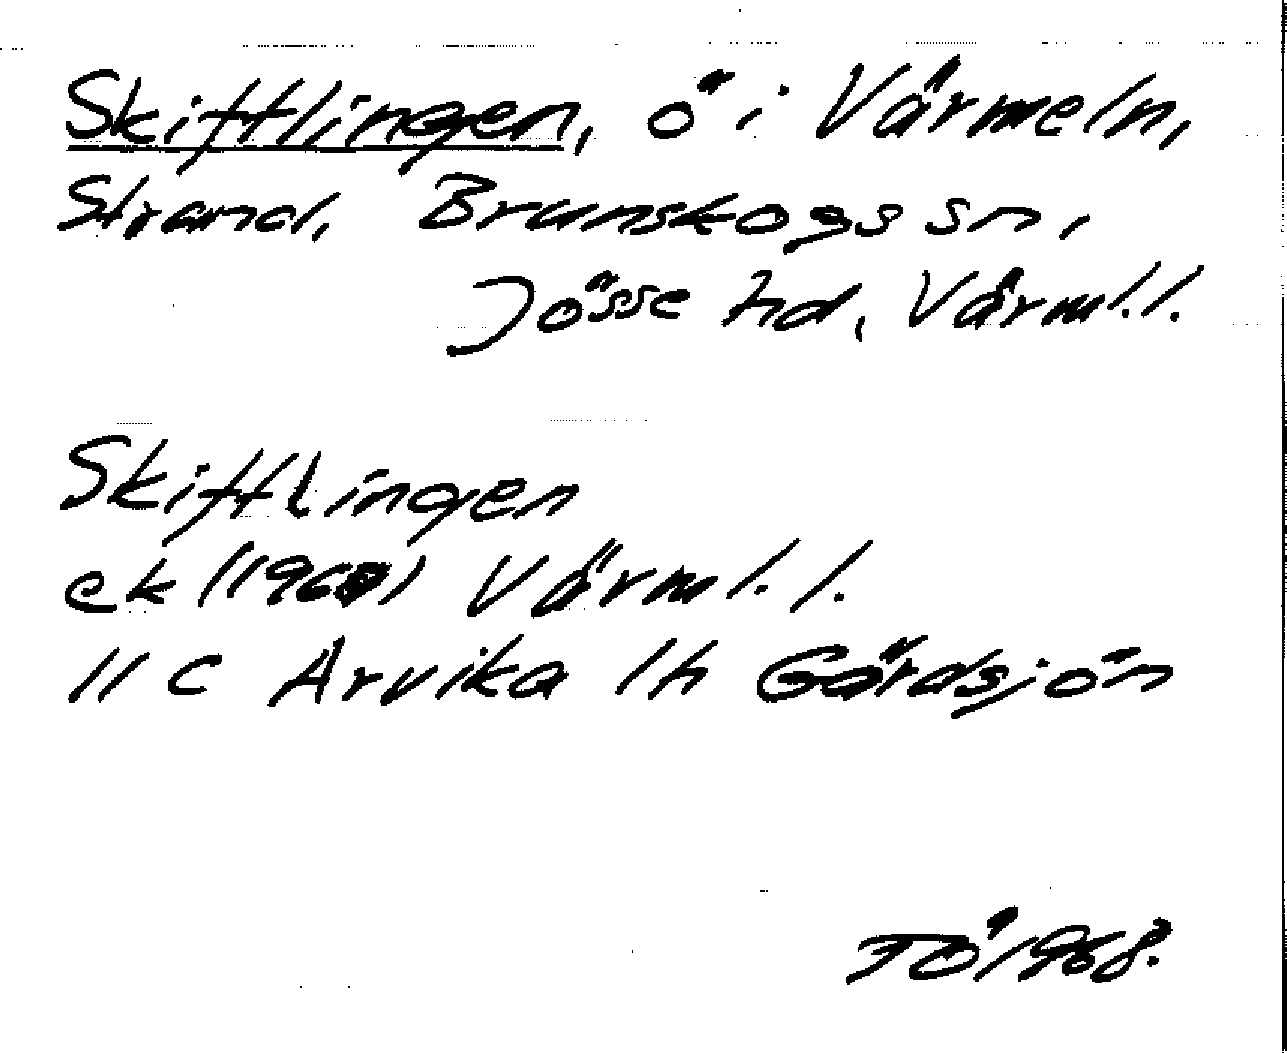 Skiftlingen, ö i Värmeln,
Strand, Brunskogs sn,
Jösse hd, Värml. l.
Skiftlingen
ek (1967) Värml. l.
11 C Arvika 1h Gårdsjön
TÖ 1968.